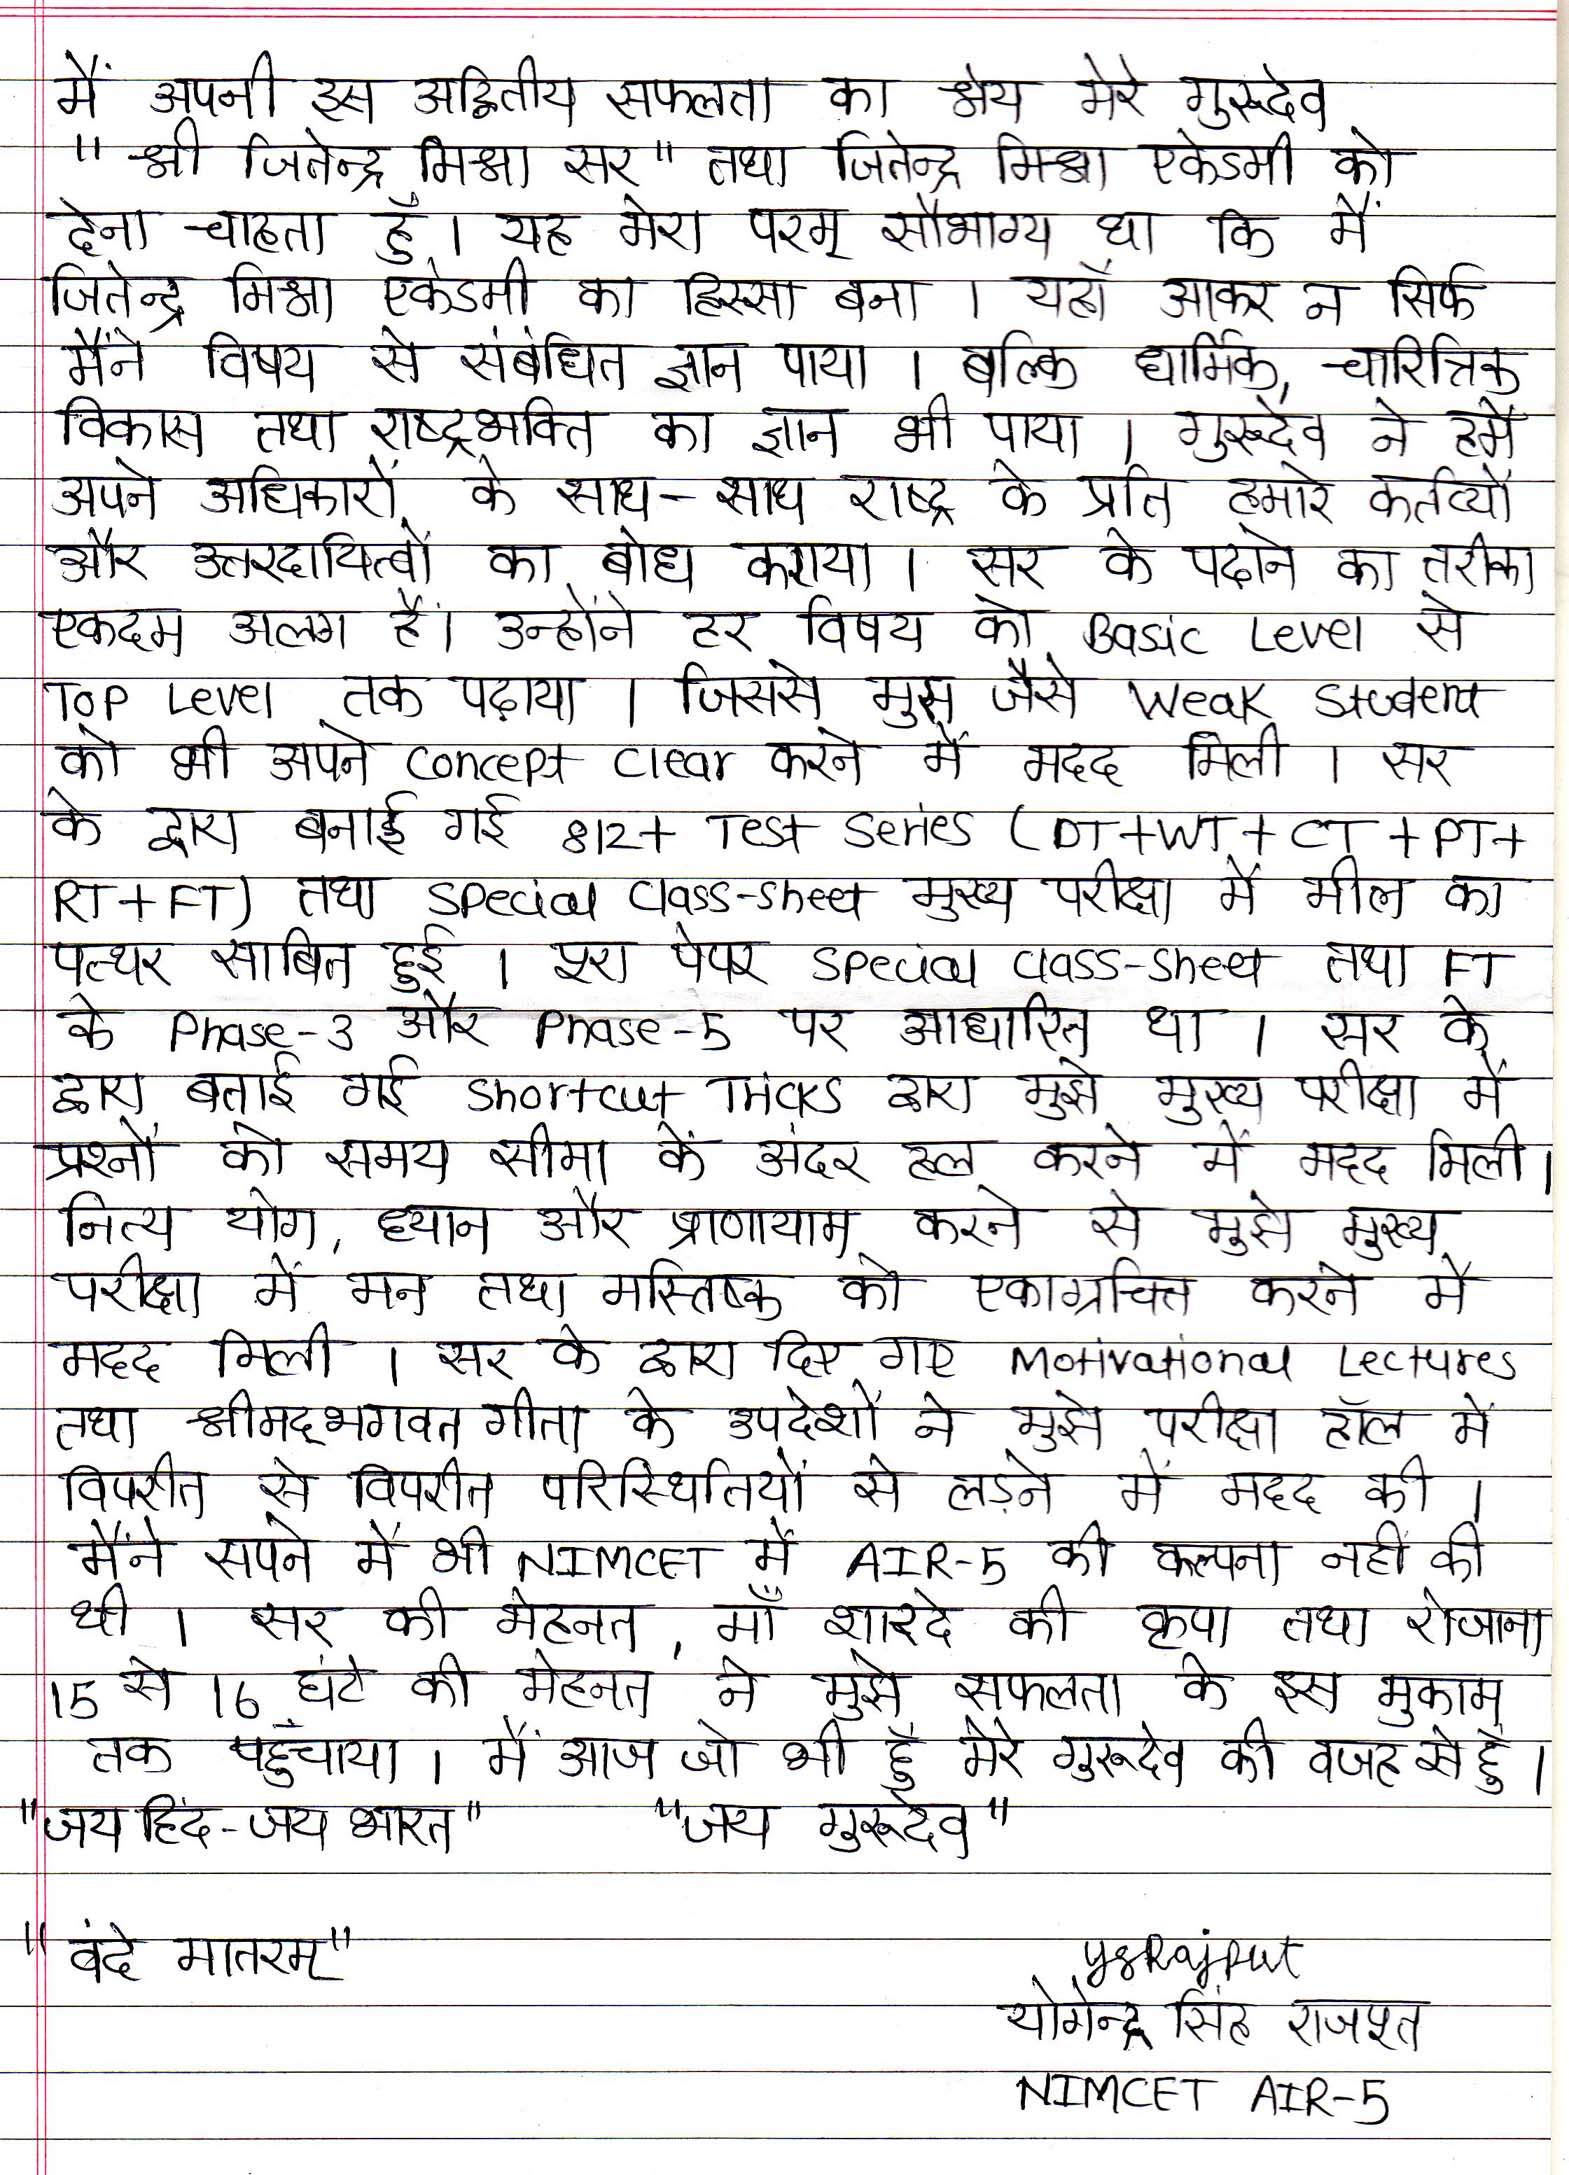 मैं अपनी इस अद्वितीय सफलता का श्रेय मेरे गुरूदेव
"श्री जितेन्द्र मिश्रा सर" तथा जितेन्द्र मिश्रा एकेडमी को
देना चाहता हूँ। यह मेरा परम् सौभाग्य था कि मैं
जितेन्द्र मिश्रा एकेडमी का हिस्सा बना । यहाँ आकर न सिर्फ
मैंने विषय से संबंधित ज्ञान पाया । बल्कि धार्मिक, चारित्रिक
विकास तथा राष्ट्रभक्ति का ज्ञान भी पाया । गुरूदेव ने हमें
अपने अधिकारों के साथ-साथ राष्ट्र के प्रति हमारे कर्तव्यों
और उत्तरदायित्वों का बोध कराया । सर के पढाने का तरीका
एकदम अलग हैं। उन्होंने हर विषय को Basic Level से
Top Level तक पढ़ाया । जिससे मुझ जैसे Weak Student
को भी अपने concept clear करने में मदद मिली । सर
के द्वारा बनाई गई 812+ Test Series (DT+WT+CT+PT+
RT+FT) तथा Special Class-Sheet मुख्य परीक्षा में मील का
पत्थर साबित हुई । पूरा पेपर Special Class-Sheet तथा FT
के Phase-3 और Phase-5 पर आधारित था । सर के
द्वारा बताई गई Shortcut Tricks द्वारा मुझे मुख्य परीक्षा में
प्रश्नों को समय सीमा के अंदर हल करने में मदद मिली।
नित्य योग, ध्यान और प्राणायाम करने से मुझे मुख्य
परीक्षा में मन तथा मस्तिष्क को एकाग्रचित्त करने में
मदद मिली । सर के द्वारा दिए गए Motivational Lectures
तथा श्रीमद्भगवत गीता के उपदेशों ने मुझे परीक्षा हॉल में
विपरीत से विपरीत परिस्थितियों से लड़ने में मदद की ।
मैंने सपने में भी NIMCET में AIR-5 की कल्पना नहीं की
थी । सर की मेहनत, माँ शारदे की कृपा तथा रोजाना
15 से 16 घंटे की मेहनत ने मुझे सफलता के इस मुकाम
तक पहुँचाया । मैं आज जो भी हूँ मेरे गुरूदेव की वजह से हूँ ।
"जय हिंद-जय भारत" "जय गुरूदेव"
"वंदे मातरम्"
ysRajput
योगेन्द्र सिंह राजपूत
NIMCET AIR-5